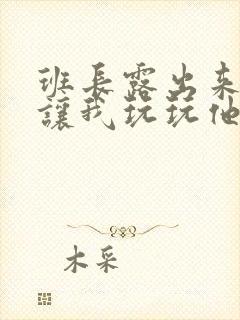 班長露出来
讓我玩玩他
木采